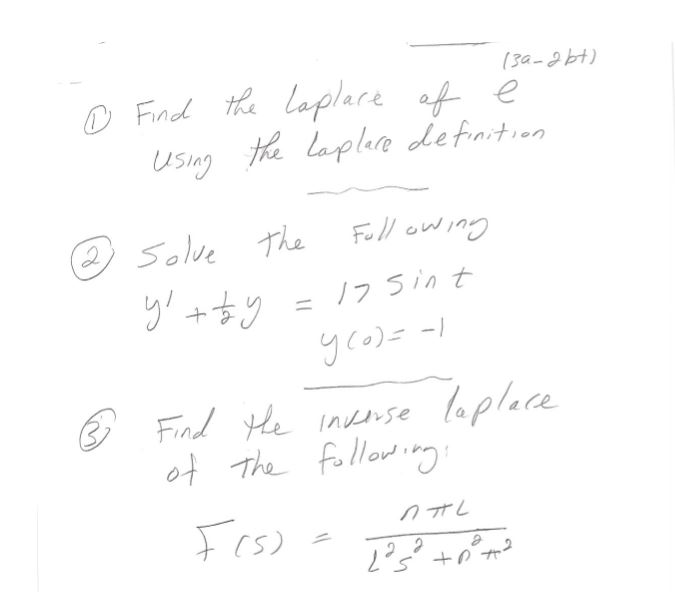 ① Find the laplace of e^(3a-2bt)
Using the Laplace definition
② Solve the Following
y' + 1/2 y = 17 sin t
y(0) = -1
③ Find the inverse laplace
of the following:
F(s) = nπL / (L²s² + n²π²)